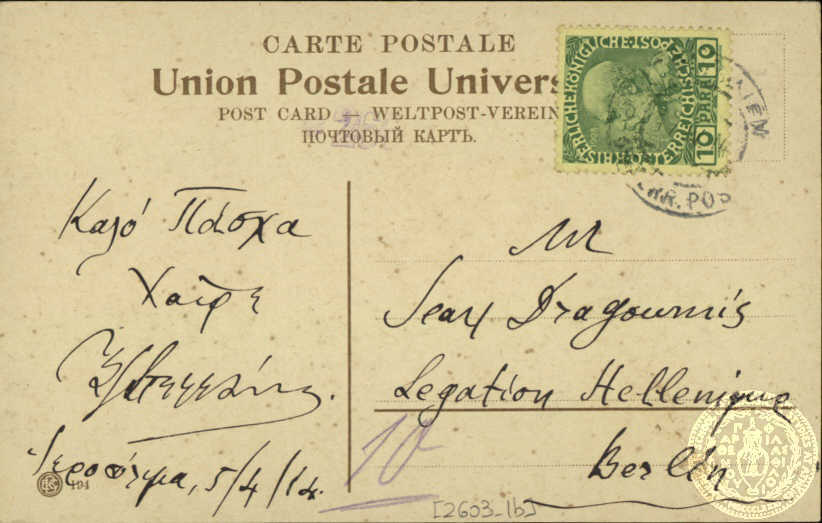 CARTE POSTALE
Union Postale Univers
POST CARD — WELTPOST-VEREIN
ПОЧТОВЫЙ КАРТЪ.
KAISERLICHE KÖNIGLICHE ÖSTERREICHISCHE POST
10 PARA 10
RR. POS
Καλό Πάσχα
Χαῖρε
Ἱεροσόλυμα, 5/4/14.
M
Dragoumis
Legation Hellenique
Berlin
10
494
[2603-1b]